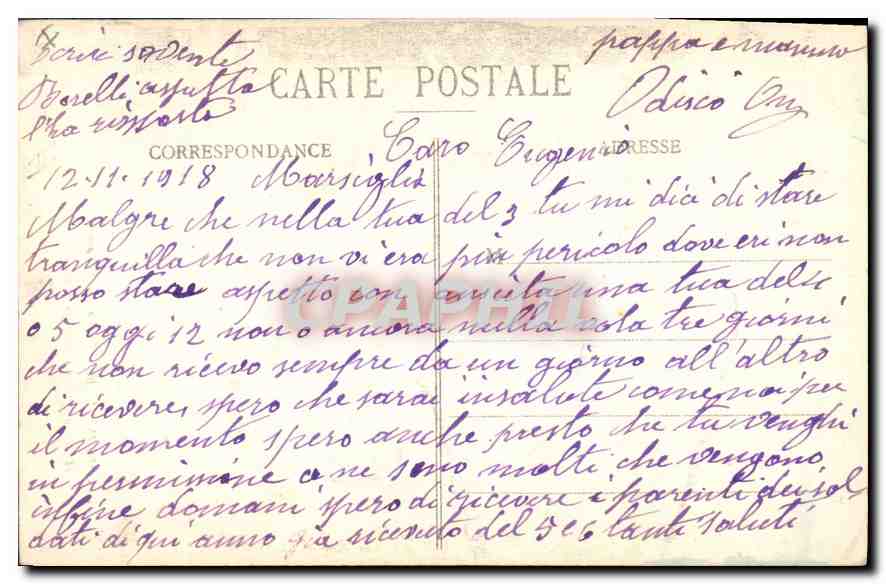 scrivi sovente
Borelli aspetta
la risposta
pappa e mamma
CARTE POSTALE
CORRESPONDANCE
ADRESSE
Caro Eugenio
12-11-1918 Marsiglia
Malgre che nella tua del 3 tu mi dici di stare
tranquilla che non vi era più pericolo dove eri non
posso stare aspetto con ansieta una tua del 4
o 5 oggi 12 non o ancora nulla sola tre giorni
che non ricevo sempre da un giorno all'altro
di ricevere, spero che sarai in salute come noi per
il momento spero anche presto che tu venghi
in permissione a ne sono molti che vengono
infine domani spero di ricevere i parenti dei sol
dati di qui anno gia ricevuto del 5 e 6 tanti saluti
CPAPHIL